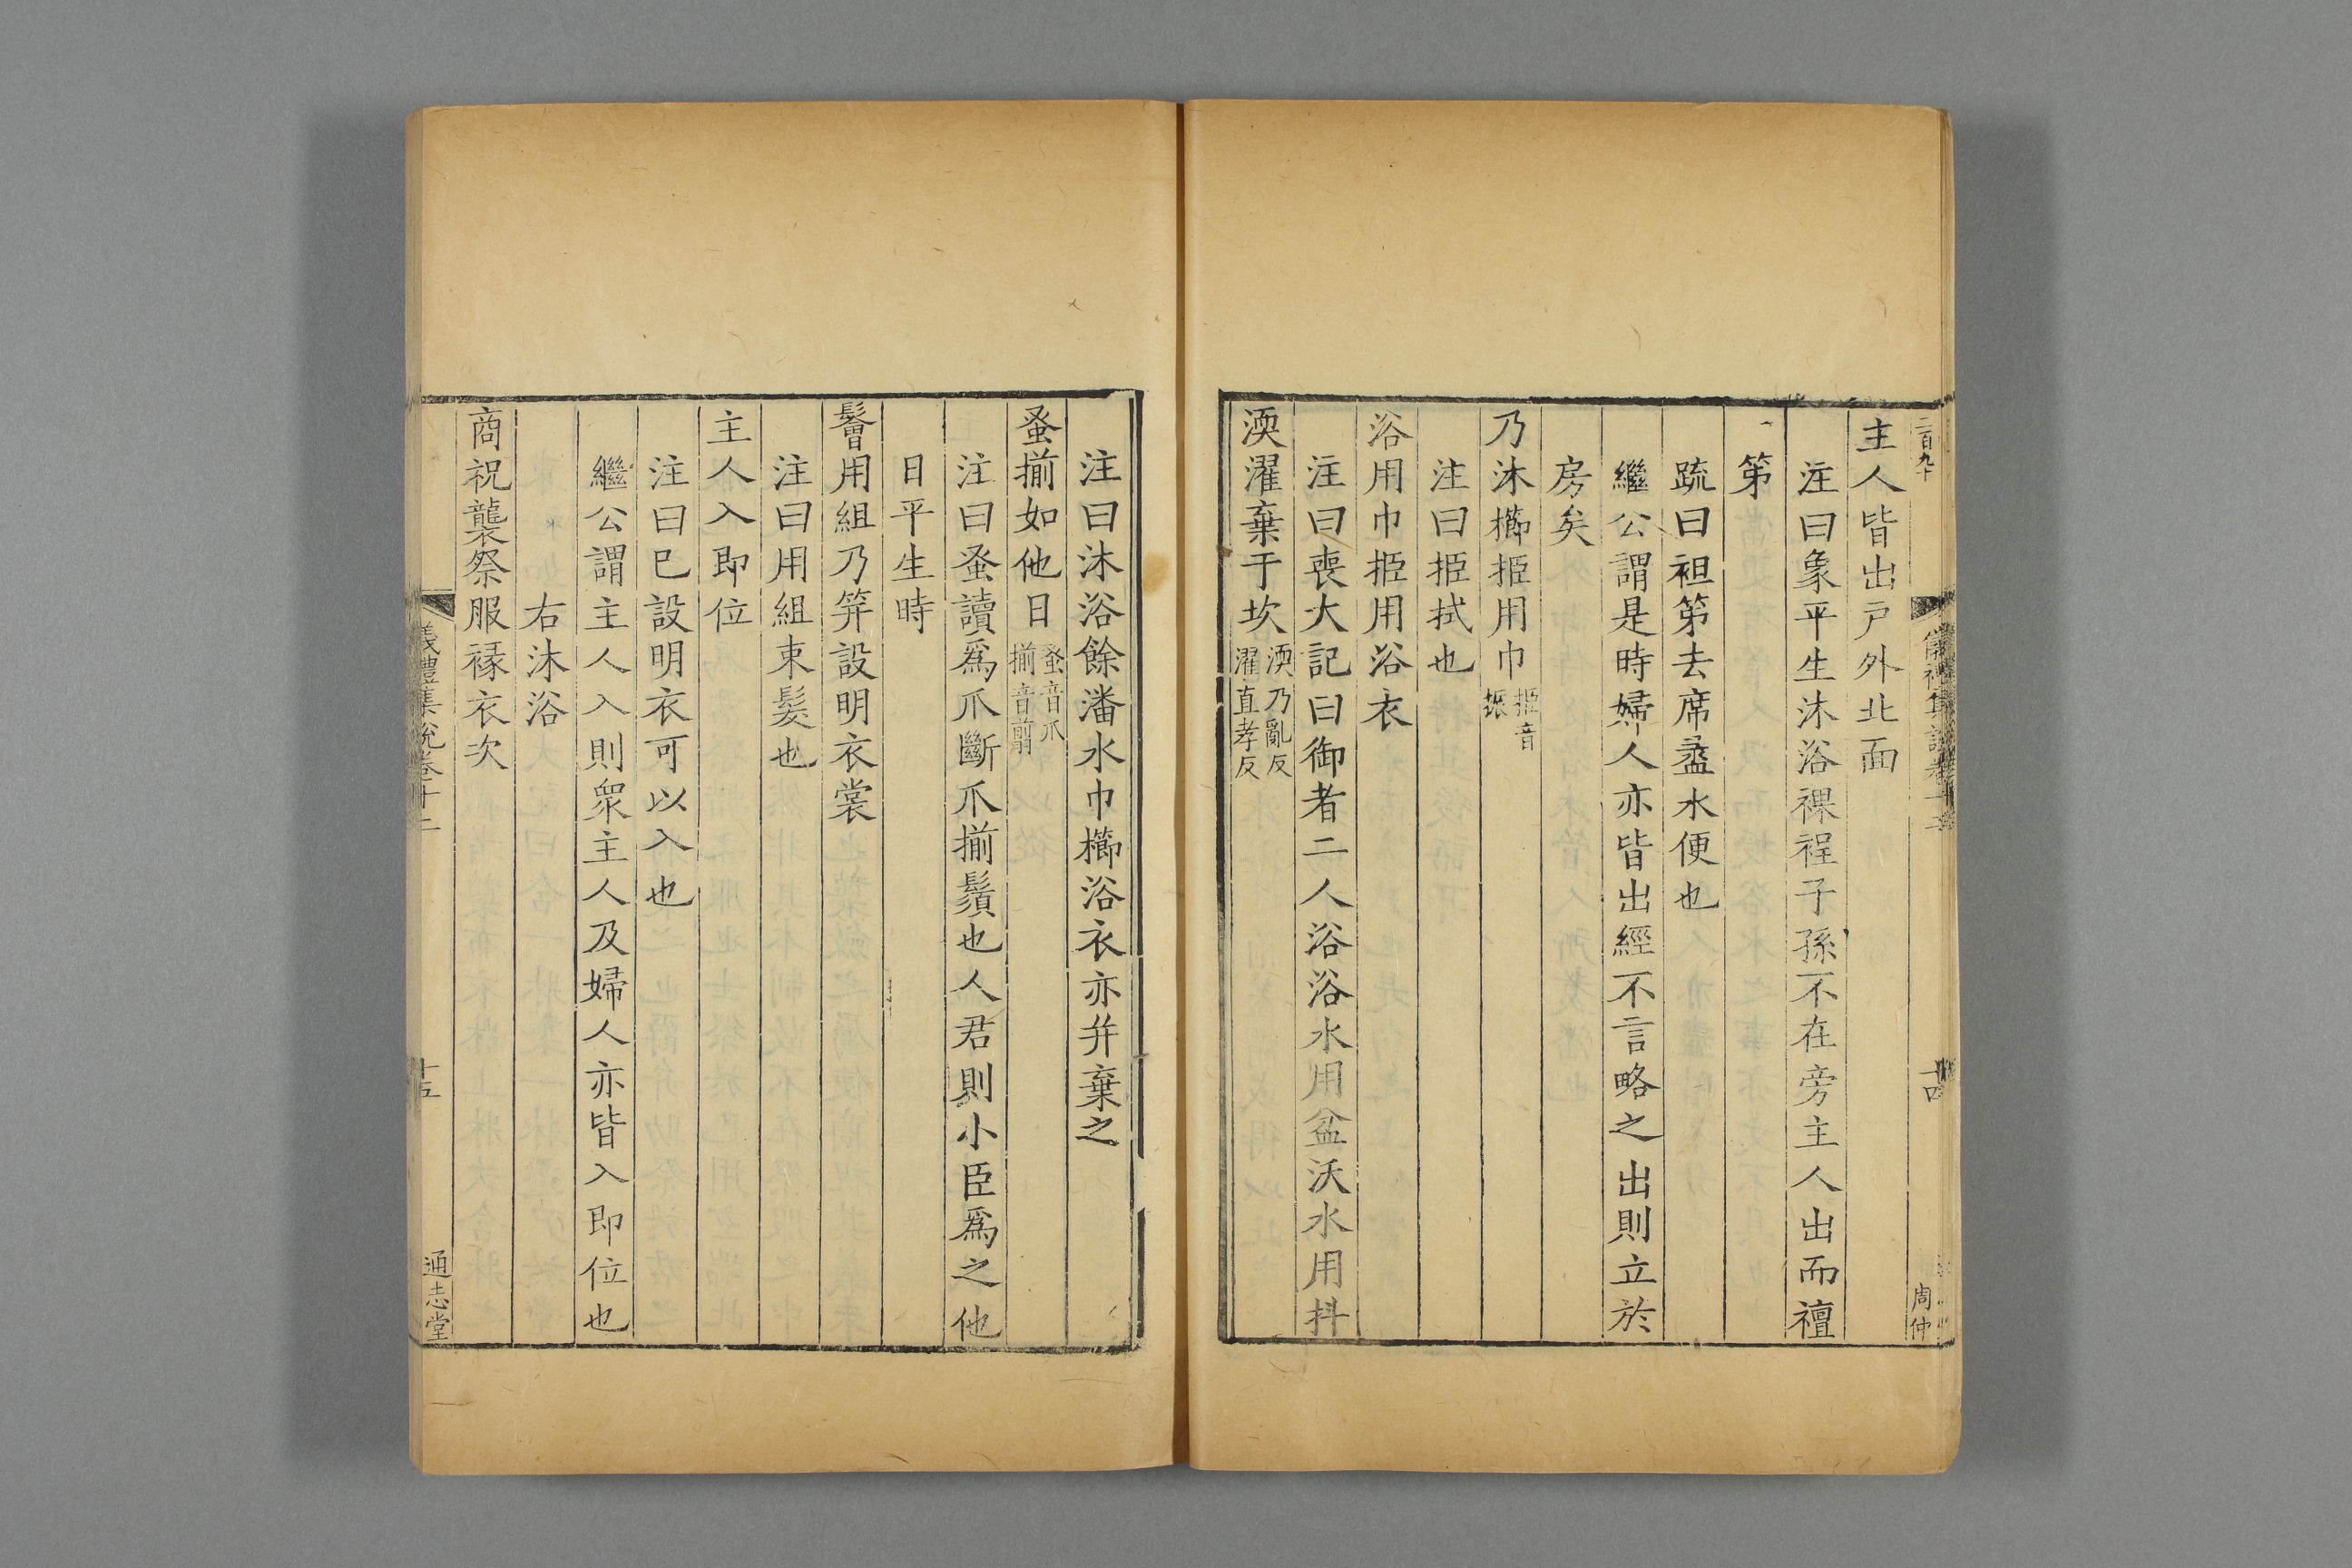 二百九十
主人皆出戶外北面
注曰象平生沐浴裸裎子孫不在旁主人出而襢
第
疏曰袒第去席盝水便也
繼公謂是時婦人亦皆出經不言略之出則立於
房矣
乃沐櫛挋用巾挋音振
注曰挋拭也
浴用巾挋用浴衣
注曰喪大記曰御者二人浴浴水用盆沃水用抖
渜濯棄于坎渜乃亂反濯直孝反
十四
周仲
注曰沐浴餘潘水巾櫛浴衣亦并棄之
蚤揃如他日蚤音爪揃音翦
注曰蚤讀爲爪斷爪揃鬚也人君則小臣爲之他
日平生時
鬠用組乃笄設明衣裳
注曰用組束髮也
主人入即位
注曰已設明衣可以入也
繼公謂主人入則衆主人及婦人亦皆入即位也
右沐浴
商祝襲祭服褖衣次
儀禮集說卷十二
十五
通志堂